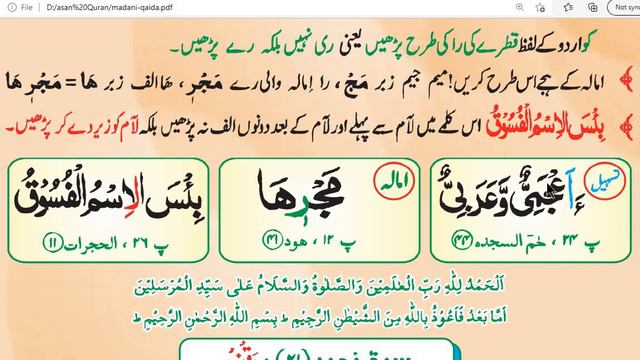 File
D:/asan%20Quran/madani-qaida.pdf
Not sync
کو اردو کے لفظ قطرے کی را کی طرح پڑھیں یعنی ری نہیں بلکہ رے پڑھیں۔
امالہ کے ہجے اس طرح کریں! میم جیم زبر مَجْ، را اِمالہ والی رے مَجْرٖ، ھا الف زبر ھَا = مَجْرٖھَا
بِئْسَ الِاسْمُ الْفُسُوْقُ اس کلمے میں لام سے پہلے اور لام کے بعد دونوں الف نہ پڑھیں بلکہ لام کو زیر دے کر پڑھیں۔
تسہیل
ءَاَعْجَمِیٌّ وَّعَرَبِیٌّ
امالہ
مَجْرٖىھَا
بِئْسَ الِاسْمُ الْفُسُوْقُ
پ ۲۴، حٰمٓ السجدہ ۴۴
پ ۱۲، ھود ۴۱
پ ۲۶، الحجرات ۱۱
اَلْحَمْدُ لِلّٰهِ رَبِّ الْعٰلَمِیْنَ وَالصَّلٰوةُ وَالسَّلَامُ عَلٰی سَیِّدِ الْمُرْسَلِیْنَ
اَمَّا بَعْدُ فَاَعُوْذُ بِاللّٰهِ مِنَ الشَّیْطٰنِ الرَّجِیْمِ ط بِسْمِ اللّٰهِ الرَّحْمٰنِ الرَّحِیْمِ ط